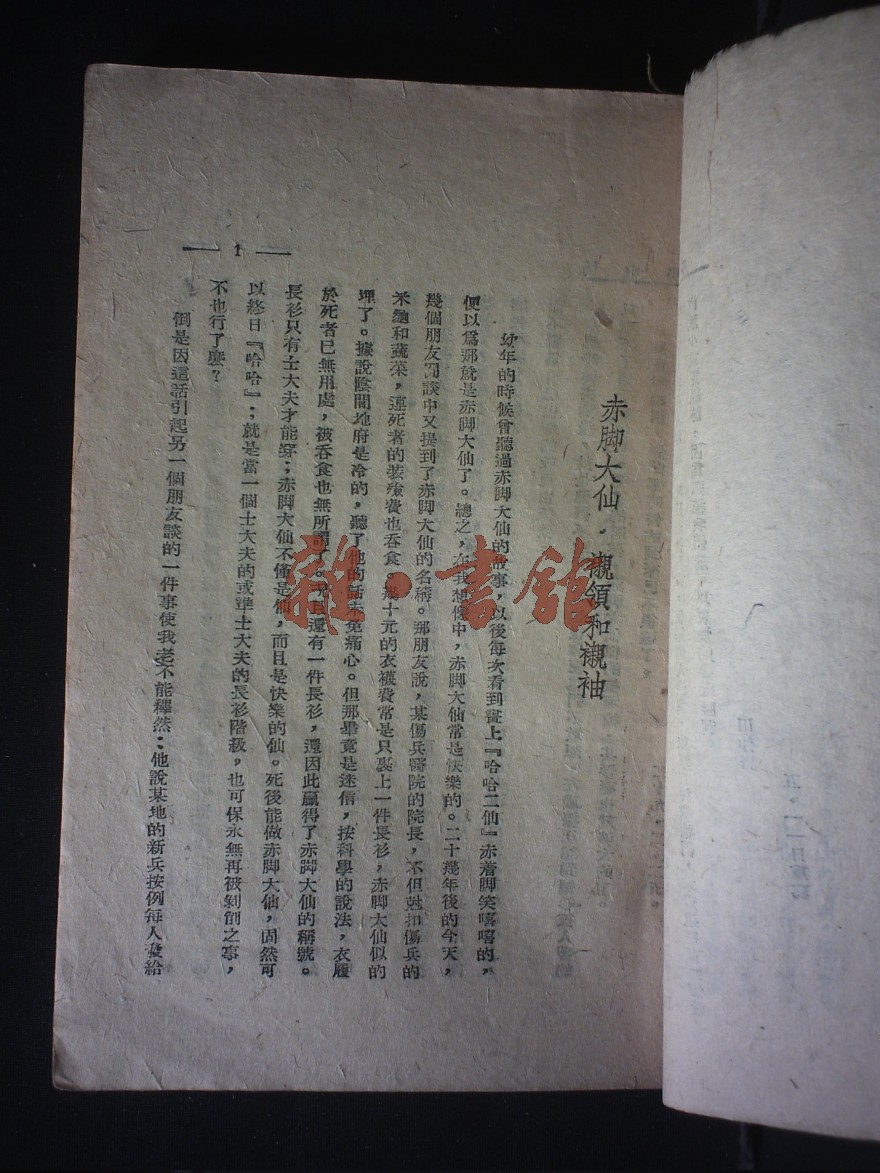 赤脚大仙·襯領和襯袖
幼年的時候曾聽過赤脚大仙的故事，以後每次看到畫上『哈哈二仙』赤着脚笑嘻嘻的，
便以爲那就是赤脚大仙了。總之，在我想像中，赤脚大仙常是快樂的。二十幾年後的今天，
幾個朋友閒談中又提到了赤脚大仙的名稱。那朋友說，某傷兵醫院的院長，不但尅扣傷兵的
米麵和蔬菜，連死者的裝殮費也吞食。幾十元的衣襪費常是只裹上一件長衫，赤脚大仙似的
埋了。據說陰間地府是冷的，聽了他的話未免痛心。但那畢竟是迷信，按科學的說法，衣履
於死者已無用處，被吞食也無所謂了。况且還有一件長衫，還因此贏得了赤脚大仙的稱號。
長衫只有士大夫才能穿；赤脚大仙不僅是仙，而且是快樂的仙。死後能做赤脚大仙，固然可
以終日『哈哈』；就是當一個士大夫的或準士大夫的長衫階級，也可保永無再被剝削之事，
不也行了麽？
倒是因這話引起另一個朋友談的一件事使我老不能釋然：他說某地的新兵按例每人發給
— 1 —
雜·書館